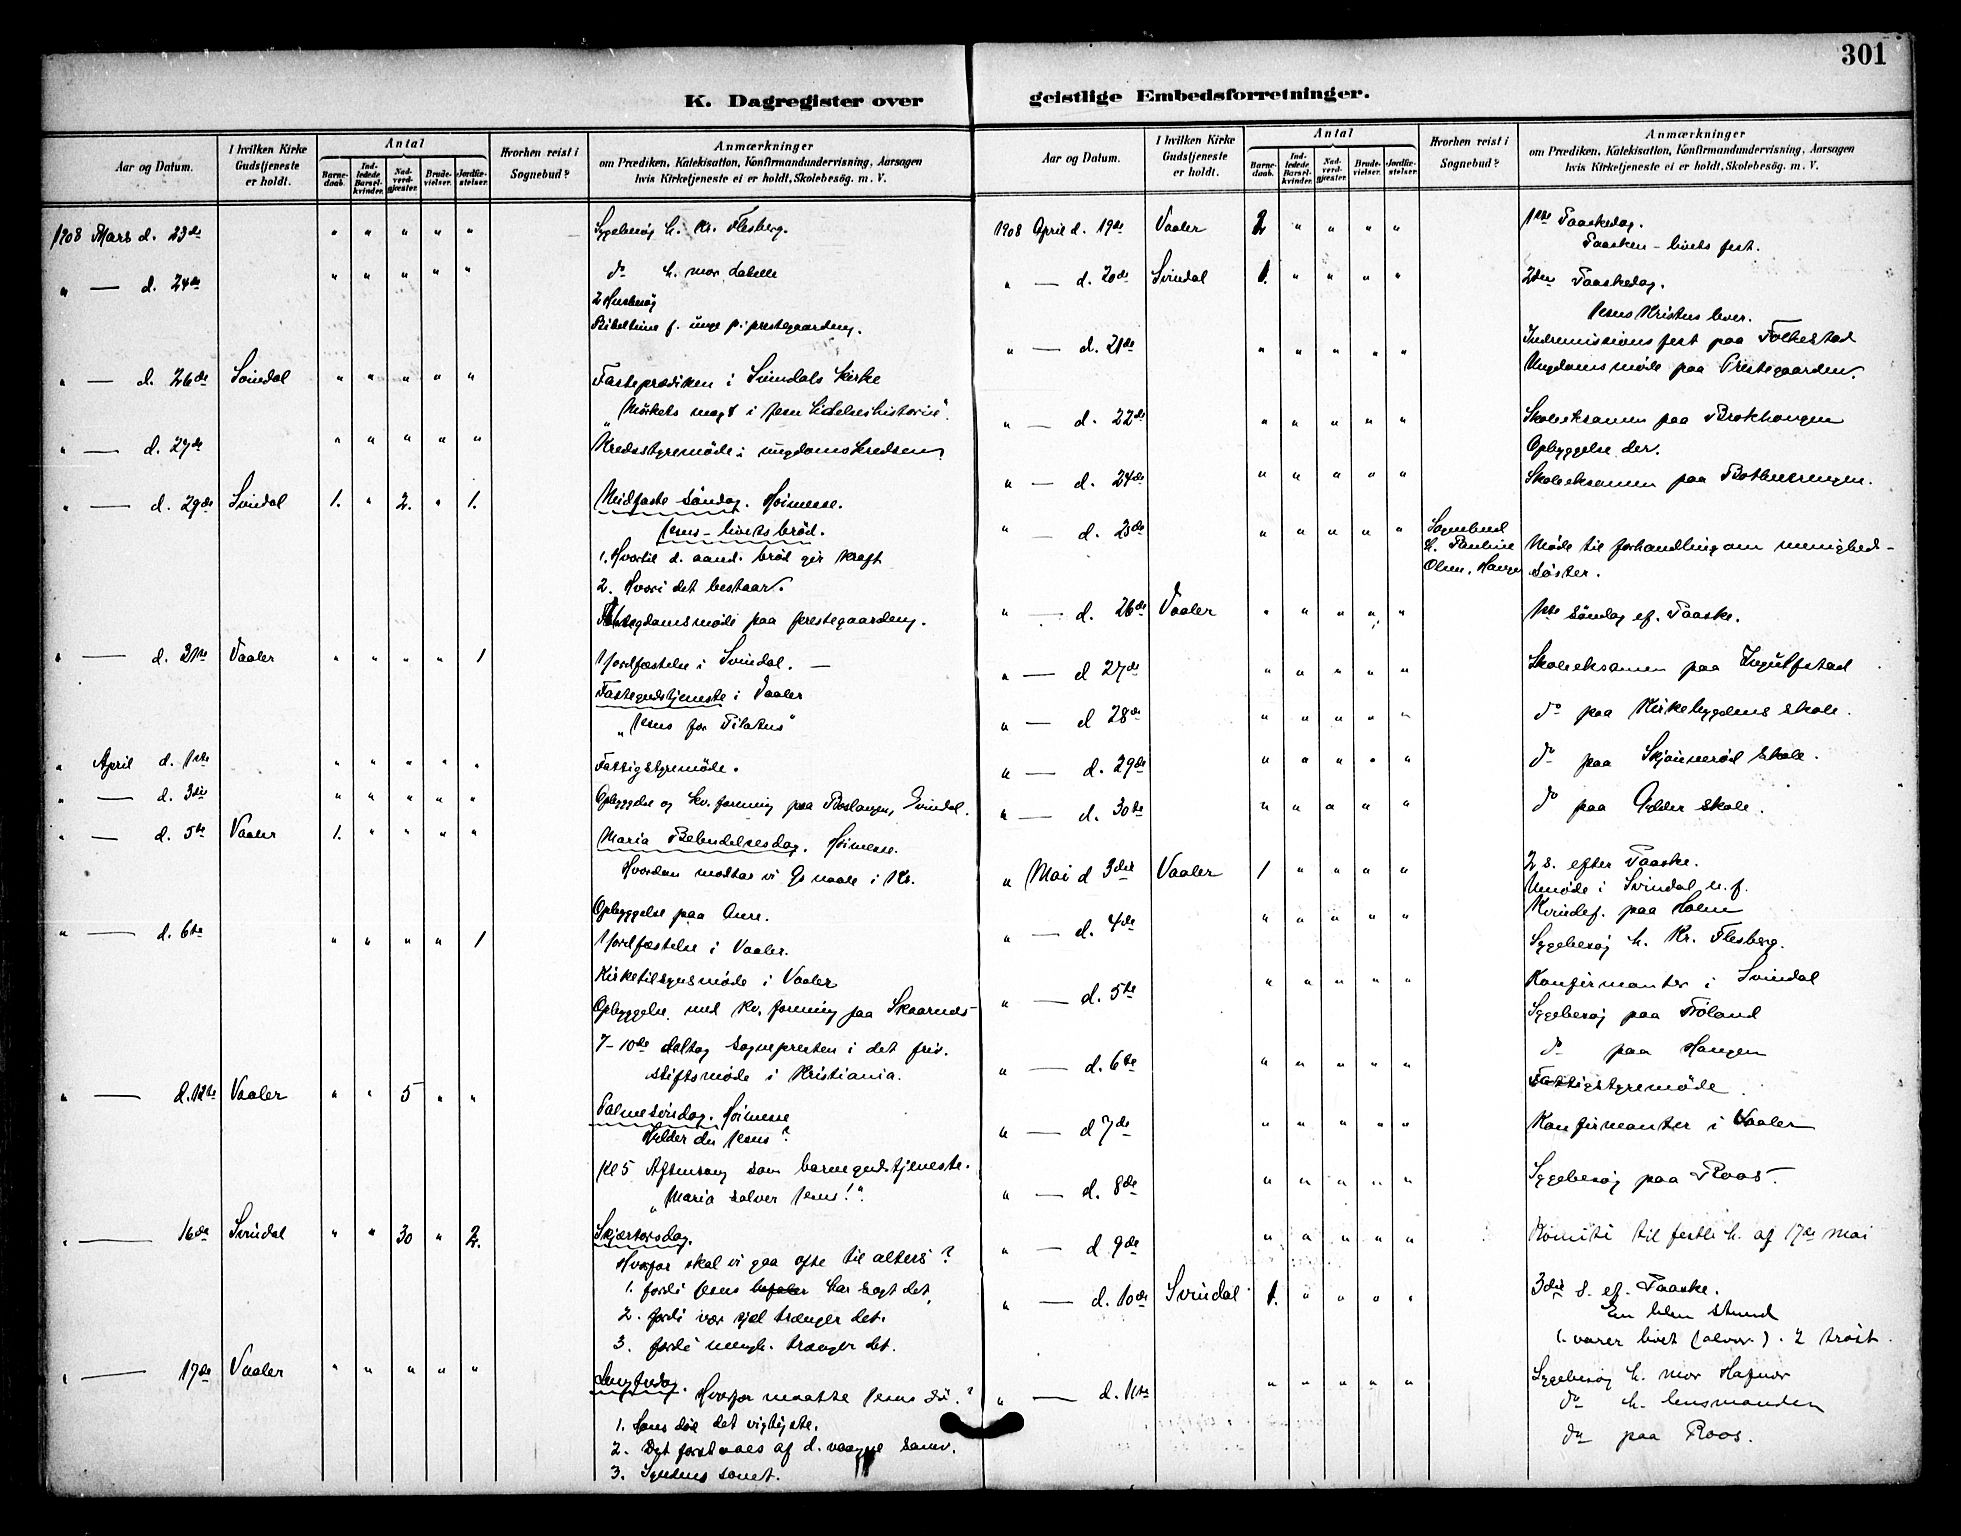 301
K. Dagregister over geistlige Embedsforretninger.
Aar og Datum.
I hvilken Kirke Gudstjeneste er holdt.
Antal
Barnedaab.
Indledede Barselkvinder.
Nadverdgjæster.
Brudevielser.
Jordfæstelser.
Hvorhen reist i Sognebud?
Anmærkninger
om Prædiken, Katekisation, Konfirmandundervisning, Aarsagen
hvis Kirketjeneste ei er holdt, Skolebesög. m. V.
1908 Mars d. 23de " " " " " Sygebesøg h. Kr. Flesberg.
" — d. 24de " " " " " do h. mor
2 Husbesøg
Bibeltime f. unge p. prestegaarden.
" — d. 26de Svindal " " " " " Fasteprædiken i Svindals kirke
„Mørkets magt i Jesu Lidelseshistorie".
" — d. 27de " " " " " Kredsstyremøde i ungdomskredsen.
" — d. 29de Svindal 1. " 2. " 1. Midfaste søndag. Høimesse.
Jesus – livets brød.
1. Hvortil d. aand. brød gir kraft
2. Hvori det bestaar.
Ungdomsmøde paa prestegaarden.
" — d. 31te Vaaler " " " " 1 1 jordfæstelse i Svindal. —
Fastegudstjeneste i Vaaler
„Jesus for Pilatus"
" April d. 1ste " " " " " Fattigstyremøde.
" — d. 3die " " " " " Opbyggelse og kv. forening paa Svindal.
" — d. 5te Vaaler 1. " " " " Maria Bebudelsesdag. Høimesse.
Hvordan modtar vi Gs naade i Kr.
Opbyggelse paa Aure.
" — d. 6te " " " " 1 1 jordfæstelse i Vaaler.
Kirketilsynsmøde i Vaaler
Opbyggelse med kv. forening paa Skaarnes
7–10de deltog sognepresten i det friv.
stiftsmøde i Kristiania.
" — d. 12te Vaaler " " 5 " " Palmesøndag. Høimesse
Hylder du Jesus?
Kl 5 Aftensang som barnegudstjeneste.
„Maria salver Jesus!".
" — 16de Svindal " " 30 " 2. Skjærtorsdag.
Hvorfor skal vi gaa ofte til alters?
1. fordi Jesus befaler har sagt det
2. fordi vor sjel trænger det.
3. fordi mengh. trænger det.
" — 17de Vaaler " " " " " Langfredag. Hvorfor maatte Jesus dø?
1. Hans død det vigtigste.
2. Det forstaaes af d. vaagne samv.
3. Syndens sonet.
Aar og Datum.
I hvilken Kirke Gudstjeneste er holdt.
Antal
Barnedaab.
Indledede Barselkvinder.
Nadverdgjæster.
Brudevielser.
Jordfæstelser.
Hvorhen reist i Sognebud?
Anmærkninger
om Prædiken, Katekisation, Konfirmandundervisning, Aarsagen
hvis Kirketjeneste ei er holdt, Skolebesög. m. V.
1908 April d. 19de Vaaler 2 " " " " 1ste Paaskedag.
Paasken – livets fest.
" — d. 20de Svindal 1. " " " " 2den Paaskedag.
Jesus Kristus lever.
" — d. 21de " " " " " Indremissionsfest paa Folkestad
Ungdomsmøde paa Prestegaarden.
" — d. 22de " " " " " Skoleeksamen paa Brokhaugen
Opbyggelse der.
" — d. 24de " " " " " Skoleeksamen paa
" — d. 25de " " " " " Sognebud h. Pauline Olsen, Haugen Møde til forhandling om menighed-
søster.
" — d. 26de Vaaler " " " " " 1ste søndag ef. Paaske.
" — d 27de " " " " " Skoleeksamen paa Ingulfstad
" — d 28de " " " " " do paa Kirkebygdens skole.
" — d. 29de " " " " " do paa Skjønnerød skole.
" — d. 30de " " " " " do paa Gylder skole.
" Mai d 3die Vaaler 1 " " " " 2 s. efter Paaske.
Umøde i Svindal u. f.
" — d. 4de " " " " " Kvindef. paa Holm
Sygebesøg h. Kr. Flesberg.
" — d. 5te " " " " " Konfirmanter i Svindal
Sygebesøg paa Frøland
" — d. 6te " " " " " do paa Haugen
Fattigstyremøde
" — d 7de " " " " " Konfirmanter i Vaaler
" — d. 8de " " " " " Sygebesøg paa Roos.
" — d. 9de " " " " " Komité til festlh. af 17de Mai
" — d. 10de Svindal 1. " " " " 3die s. ef. Paaske.
En liden stund
1. varer livet (alvor). 2 trøst.
" — d. 11te " " " " " Sygebesøg h. mor Hafnor
do h. lensmanden
do paa Roos.